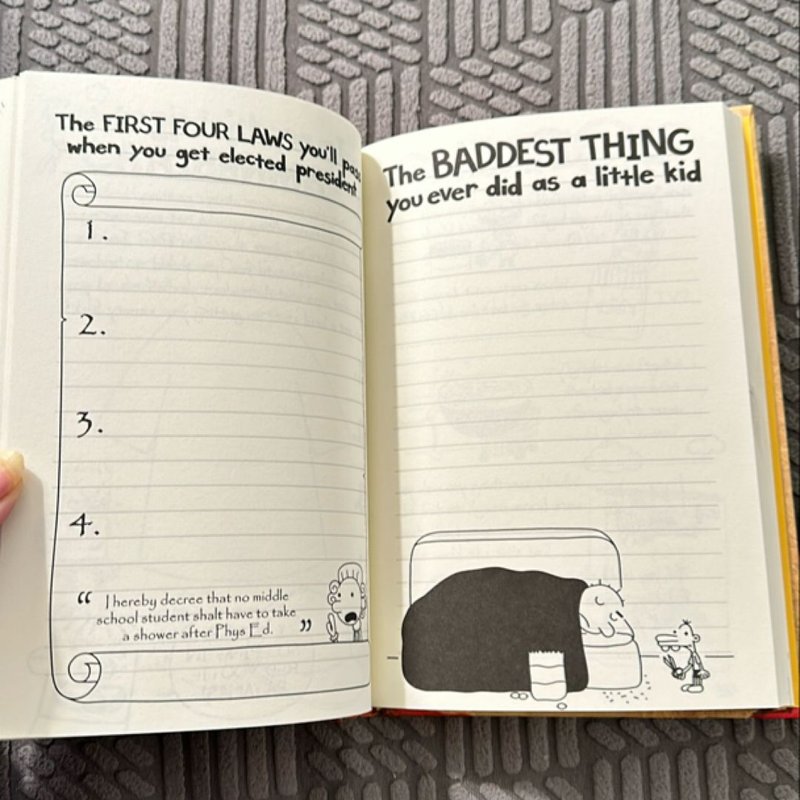 The FIRST FOUR LAWS you'll pass
when you get elected president
1.
2.
3.
4.
“ I hereby decree that no middle
school student shalt have to take
a shower after Phys Ed. ”
The BADDEST THING
you ever did as a little kid